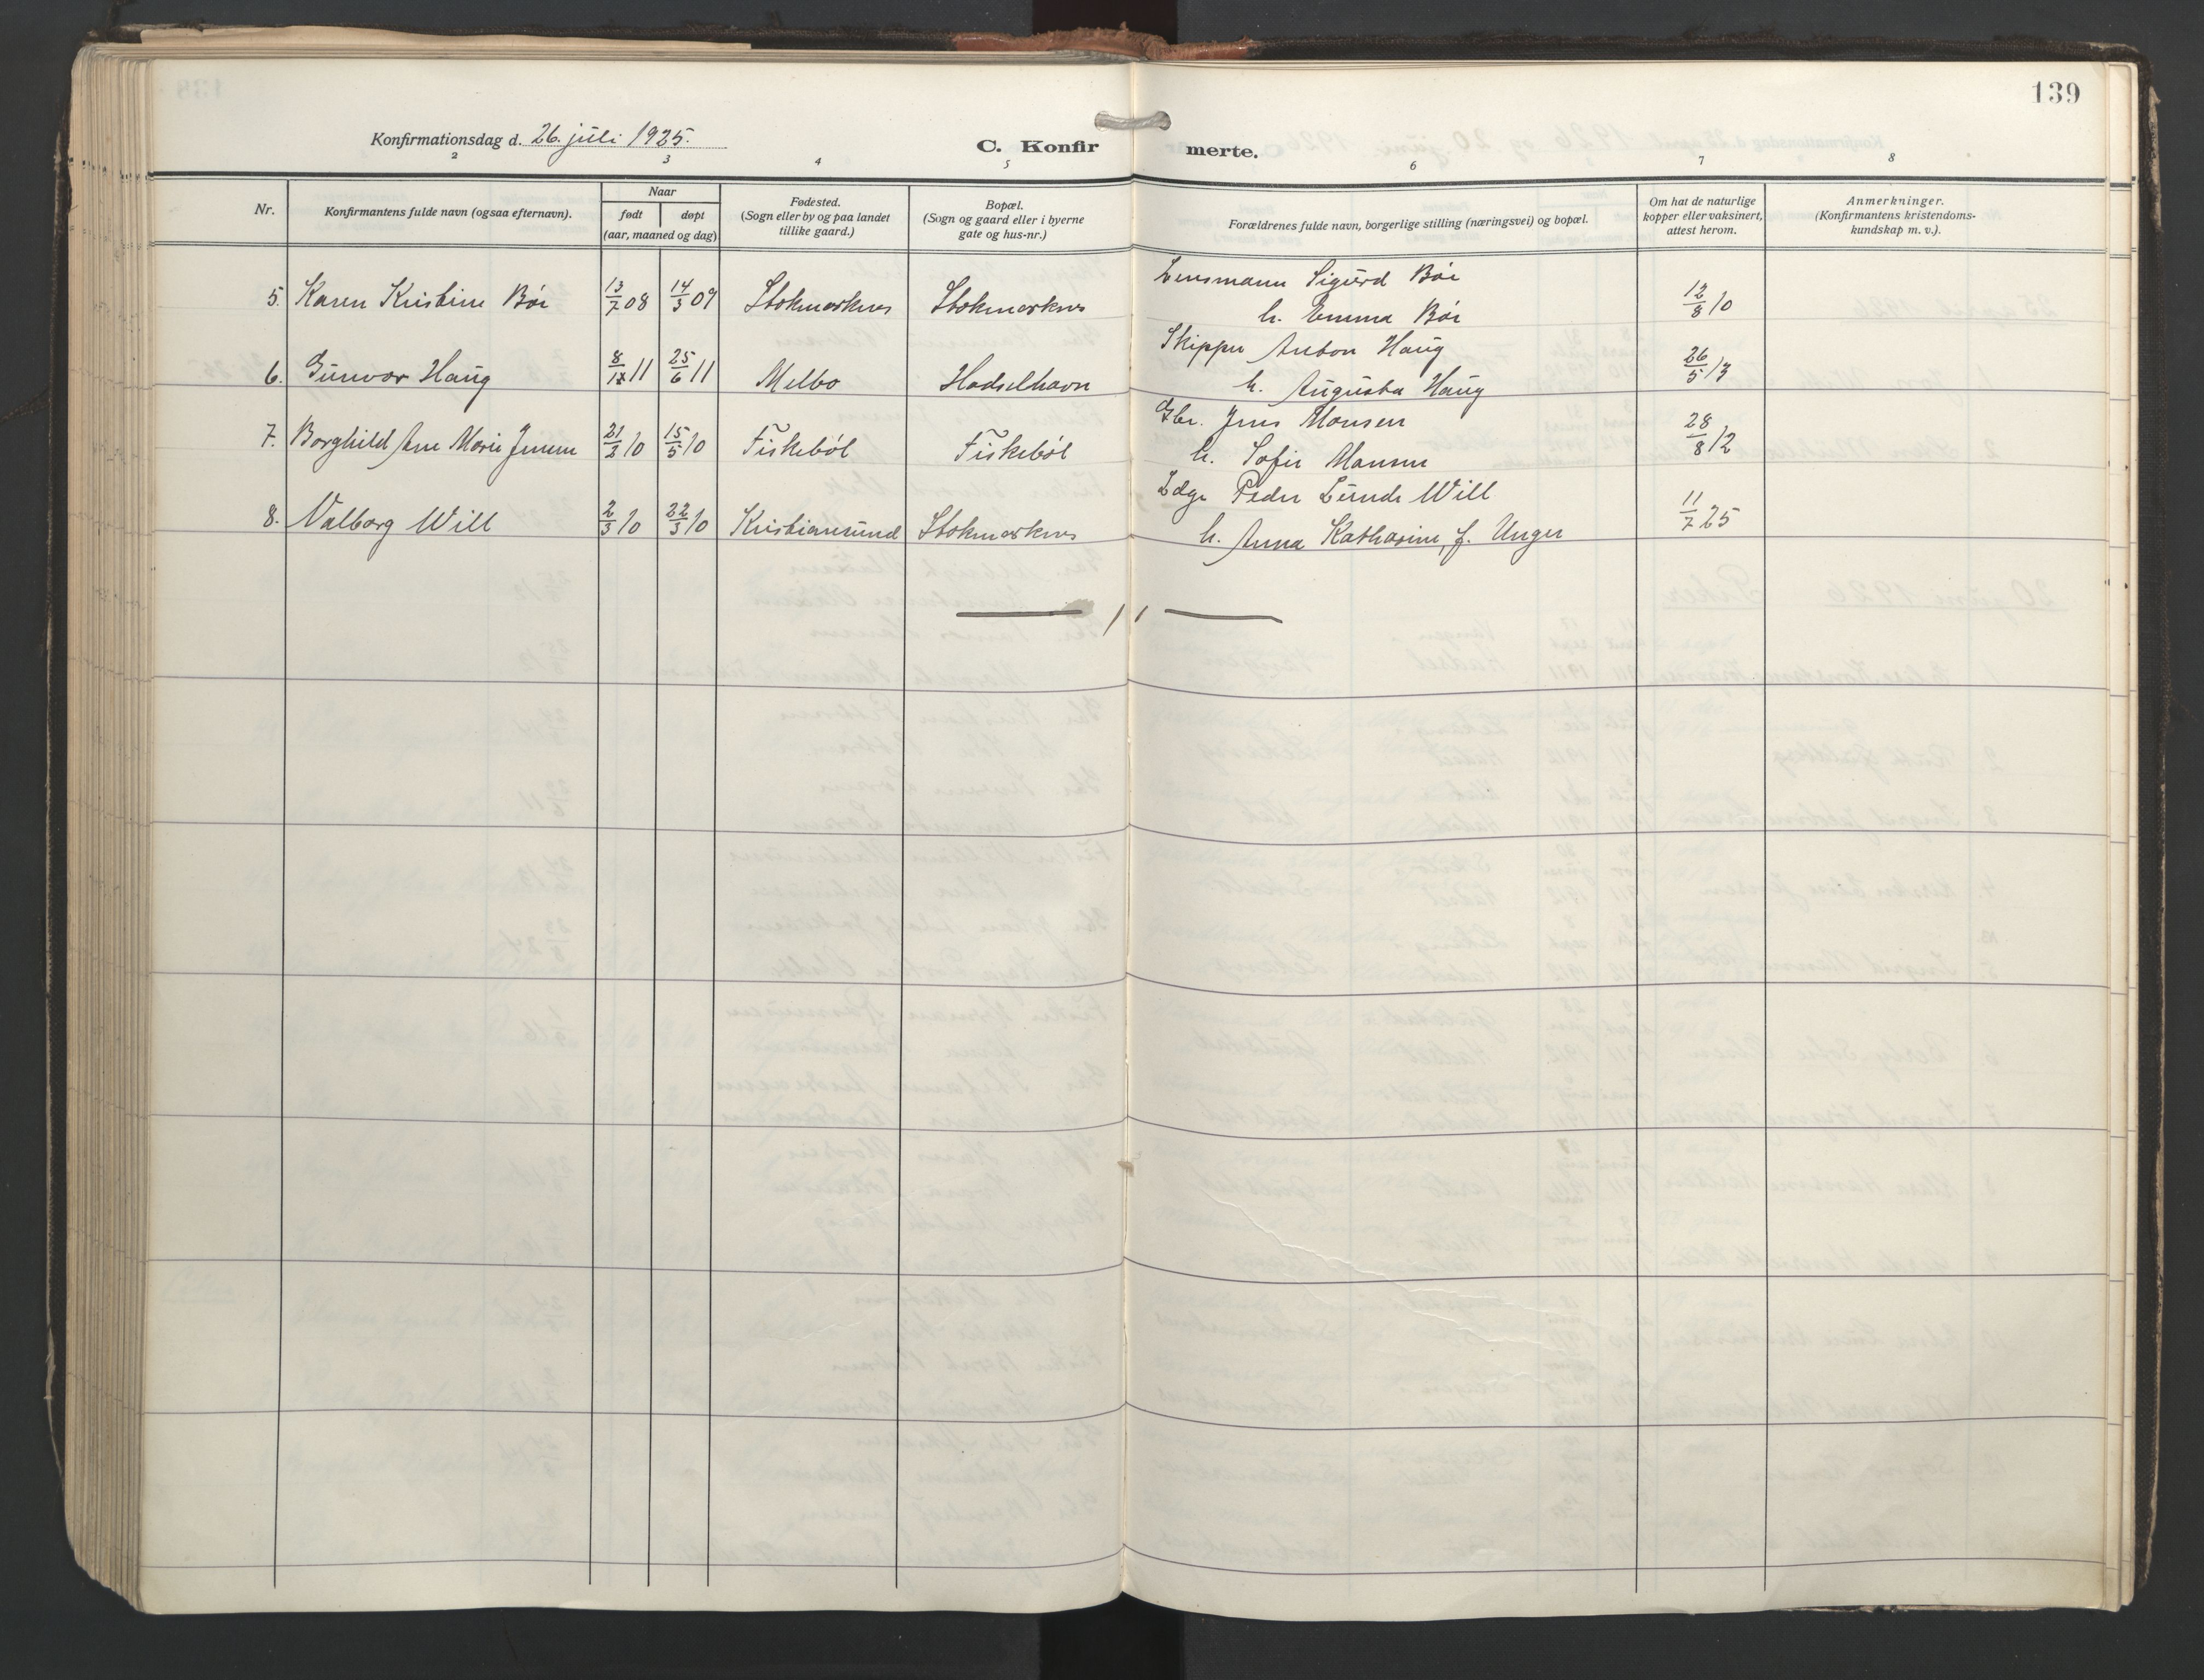 139
Konfirmationsdag d. 26. juli 1925.
C. Konfirmerte.
2 3 4 5 6 7 8
Nr.
Konfirmantens fulde navn (ogsaa efternavn).
Naar
født døpt
(aar, maaned og dag)
Fødested.
(Sogn eller by og paa landet
tillike gaard.)
Bopæl.
(Sogn og gaard eller i byerne
gate og hus-nr.)
Forældrenes fulde navn, borgerlige stilling (næringsvei) og bopæl.
Om hat de naturlige
kopper eller vaksinert,
attest herom.
Anmerkninger.
(Konfirmantens kristendoms-
kundskap m. v.).
Lensmann Sigurd Bøe
5. Karen Kristine Bøe 13/7 08 14/3 09 Stokmarknes Stokmarknes h. Emma Bøe 12/8 10
Skipper Anton Haug
6. Gunvor Haug 8/1 11 25/6 11 Melbo Hadselhavn h. Augusta Haug 26/5 13
Gbr. Jens Monsen
7. Borghild Ane Marie Jensen 21/2 10 15/5 10 Fiskebøl Fiskebøl h. Sofie Monsen 28/8 12
Læge Peder Lunde Will
8. Valborg Will 2/3 10 22/5 10 Kristiansund Stokmarknes h. Anna Katharine, f. Unger 11/7 25